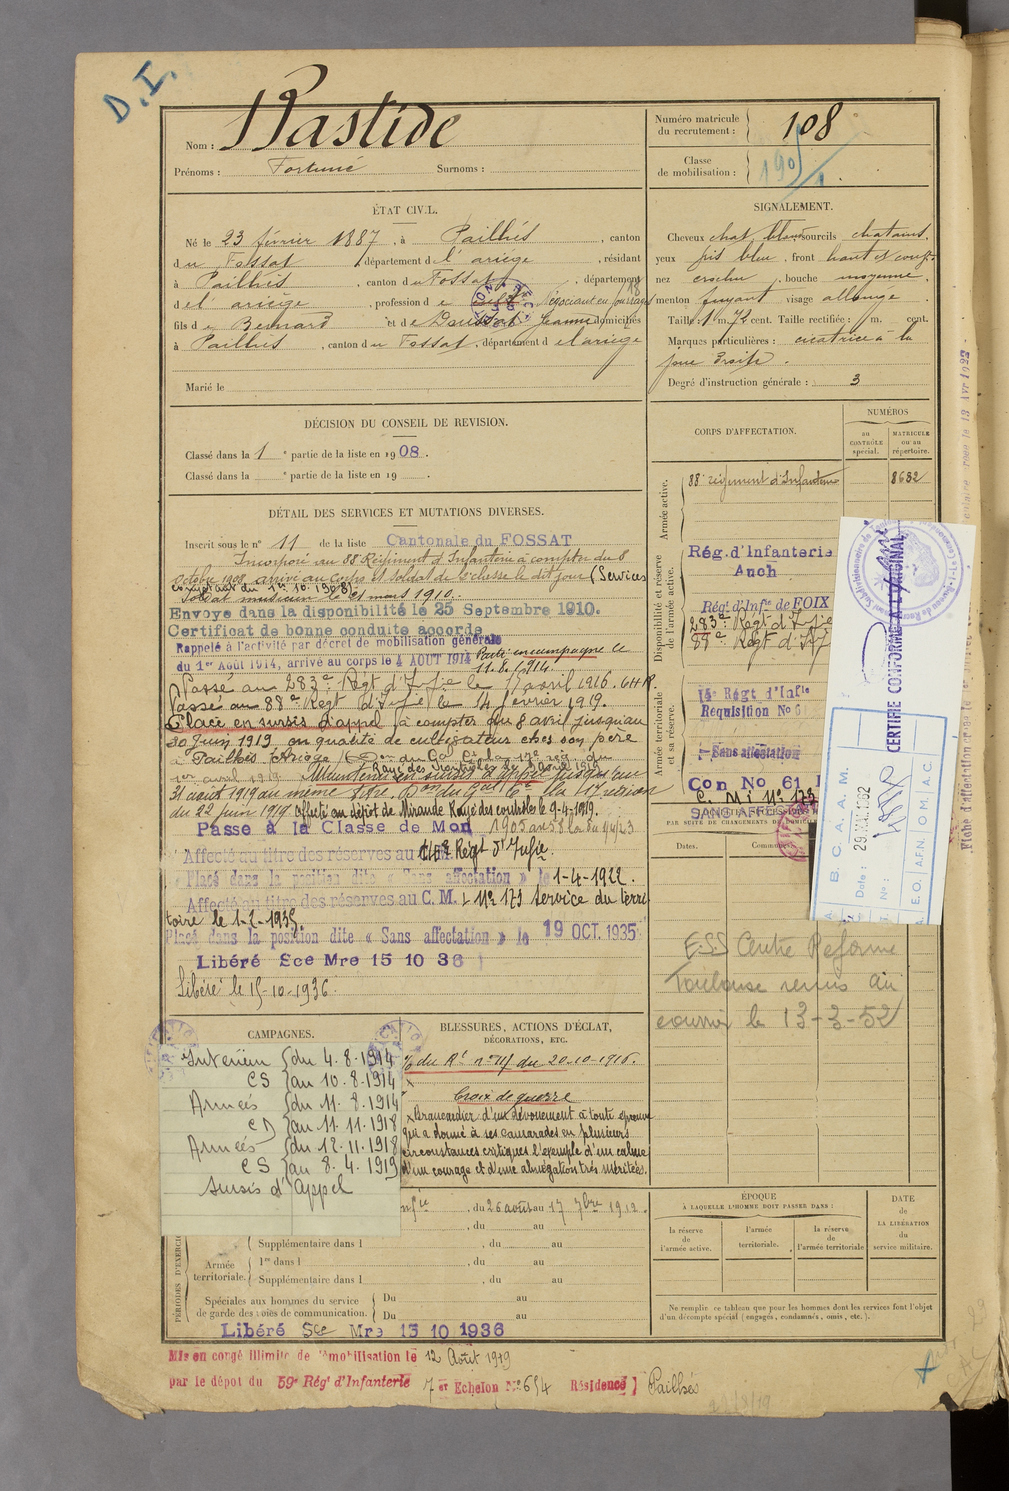 D.I.
Nom : Bastide
Prénoms : Fortuné Surnoms :
Numéro matricule du recrutement : 108
Classe de mobilisation : 190
ÉTAT CIVIL.
Né le 23 février 1887, à Pailhés, canton
du Fossat, département de l'ariège, résidant
à Pailhés, canton du Fossat, département
de l'ariège, profession de Négociant en fourrages
fils de Bernard et de Doussat Jeanne domiciliés
à Pailhés, canton du Fossat, département de l'ariège
Marié le
SIGNALEMENT.
Cheveux chat. blond sourcils chatains,
yeux gris bleu, front haut et
nez crochu, bouche moyenne,
menton fuyant visage allongé
Taille : 1 m. 72 cent. Taille rectifiée : m. cent.
Marques particulières : cicatrice à la
joue droite.
Degré d'instruction générale : 3
DÉCISION DU CONSEIL DE REVISION.
Classé dans la 1e partie de la liste en 1908.
Classé dans la e partie de la liste en 19 .
DÉTAIL DES SERVICES ET MUTATIONS DIVERSES.
Inscrit sous le n° 11 de la liste Cantonale du FOSSAT
Incorporé au 88e Régiment d'Infanterie à compter du 8
octobre 1908, arrivé au Corps et Soldat de 2e classe le dit jour (Services
comptant du 1er 10. 1908)
Soldat musicien le 21 mars 1910.
Envoyé dans la disponibilité le 25 Septembre 1910.
Certificat de bonne conduite accordé
Rappelé à l'activité par décret de mobilisation générale
du 1er Août 1914, arrivé au corps le 4 AOUT 1914 Parti en campagne le
11.8.1914.
Passé au 283e Régt d'Ifie le avril 1916.
Passé au 88e Régt d'Ifie le 14 fevrier 1919.
Placé en sursis d'appel à compter du 8 avril jusqu'au
20 Juin 1919 en qualité de cultivateur chez son père
à Pailhès, Ariège
Rayé des Controles le 9 avril 1919
1er avril 1919. Maintenu en sursis d'appel jusqu'au
31 août 1919 au même titre, Don du Gal Ct la 17e région
du 22 juin 1919. Affecté au dépôt de Mirande Rayé des controles le 9-4-1919.
Passé à la Classe de Mon 1905
Affecté au titre des réserves au Régt d'Infie.
Placé dans la position dite « Sans affectation » le 1-4-1922.
Affecté au titre des réserves au C. M. n° 173 service du terri
toire le 1-2-1935.
Placé dans la position dite « Sans affectation » le 19 OCT. 1935
Libéré Sce Mre 15 10 36
Libéré le 15-10-1936.
CORPS D'AFFECTATION.
NUMÉROS
au contrôle spécial.
matricule ou au répertoire.
Armée active.
88e régiment d'Infanterie 8632
Disponibilité et réserve de l'armée active.
Rég. d'Infanterie
Auch
Régt d'Infie de FOIX
283e Régt d'Ifie
88e Régt d'If
Armée territoriale et sa réserve.
Régt d'Infie
Requisition No 6
Sans affectation
Con No 61
C. M. n° 173
SANS AFFEC
PAR SUITE DE CHANGEMENTS DE DOMICILE
Dates. Communes
CERTIFIÉ CONFORME A L'ORIGINAL
B. C. A. A. M.
Date : 29 MAI 1962
N° :
A.E.O. A.F.N. O.M. A.C.
Fiche d'affectation
le 13 Avr 1922
ESS Centre Reforme
Toulouse remis au
courrier le 13-3-52
CAMPAGNES.
Interieur du 4.8.1914
CS au 10.8.1914
Armées du 11.8.1914
CD au 11.11.1918
Armées du 12.11.1918
CS au 8.4.1919
Sursis d'Appel
BLESSURES, ACTIONS D'ÉCLAT,
DÉCORATIONS, ETC.
du Rt n° 115 du 20-10-1916.
Croix de guerre
Brancardier d'un dévouement à toute épreuve
qui a donné à ses camarades en plusieurs
circonstances critiques l'exemple d'un calme
d'un courage et d'une abnégation très méritées.
, du 26 août au 17 7bre 1912.
, du au
Supplémentaire dans l , du au
Armée territoriale.
1re dans l , du au
Supplémentaire dans l , du au
Spéciales aux hommes du service
de garde des voies de communication.
Du au
Du au
Libéré Sce Mre 15 10 1936
ÉPOQUE
À LAQUELLE L'HOMME DOIT PASSER DANS :
la réserve de l'armée active.
l'armée territoriale.
la réserve de l'armée territoriale
DATE
de
LA LIBÉRATION
du
service militaire.
Ne remplir ce tableau que pour les hommes dont les services font l'objet
d'un décompte spécial (engagés, condamnés, omis, etc.).
Mis en congé illimité de démobilisation le 12 Août 1919
par le dépôt du 59e Régt d'Infanterie 7 er Echelon N° 654 Résidence Pailhés